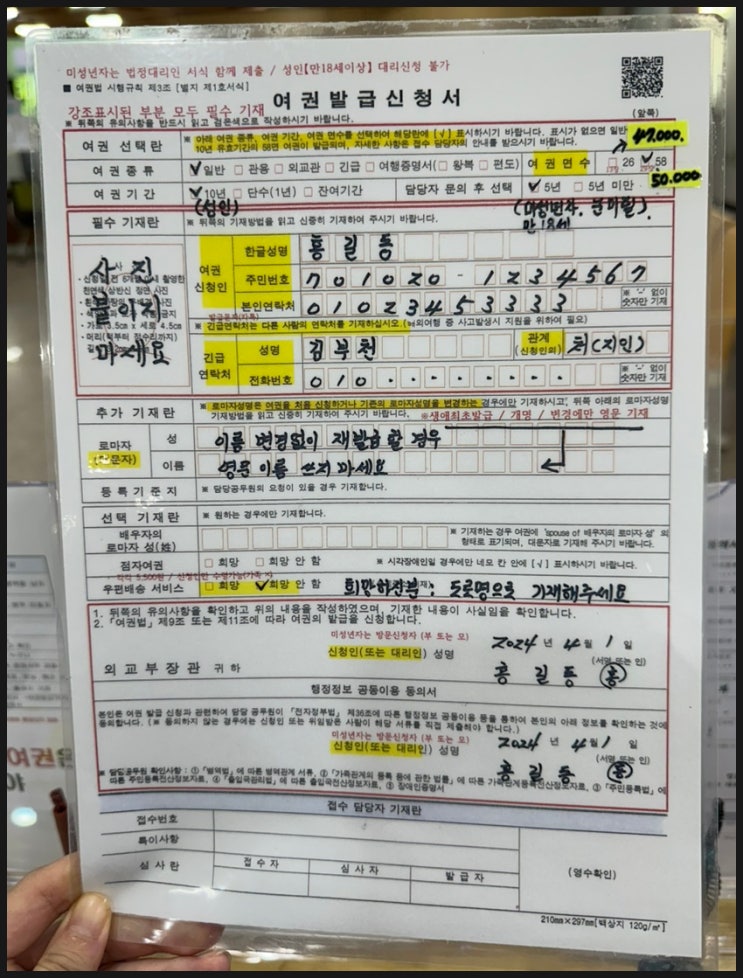 미성년자는 법정대리인 서식 함께 제출 / 성인【만18세이상】 대리신청 불가
■ 여권법 시행규칙 제3조 [별지 제1호서식]
강조표시된 부분 모두 필수 기재
여권발급신청서
(앞쪽)
※ 뒤쪽의 유의사항을 반드시 읽고 검은색으로 작성하시기 바랍니다.
여권 선택란
※ 아래 여권 종류, 여권 기간, 여권 면수를 선택하여 해당란에 [√] 표시하시기 바랍니다. 표시가 없으면 일반
10년 유효기간의 58면 여권이 발급되며, 자세한 사항은 접수 담당자의 안내를 받으시기 바랍니다.
47,000.
여권 종류 ✓일반 □ 관용 □ 외교관 □ 긴급 □ 여행증명서(□ 왕복 □ 편도) 여권면수 □ 26 ✓ 58
50.000
여권 기간 ✓10년 □ 단수(1년) □ 잔여기간 담당자 문의 후 선택 ✓ 5년 □ 5년 미만
(성인)
(미성년자, 군미필).
만 18세
필수 기재란 ※ 뒤쪽의 기재방법을 읽고 신중히 기재하여 주시기 바랍니다.
사진
붙이지
마세요
여권
신청인
한글성명 홍길동
주민번호 701020-1234567
본인연락처 01023453333 ※ '-' 없이 숫자만 기재
※ 긴급연락처는 다른 사람의 연락처를 기재하십시오. (해외여행 중 사고발생시 지원을 위하여 필요)
긴급
연락처
성명 김부천 관계 (신청인의) 처(지인)
전화번호 010 ※ '-' 없이 숫자만 기재
추가 기재란
※ 로마자성명은 여권을 처음 신청하거나 기존의 로마자성명을 변경하는 경우에만 기재하시고, 뒤쪽 아래의 로마자성명
기재방법을 읽고 신중히 기재하여 주시기 바랍니다. ※생애최초발급 / 개명 / 변경에만 영문 기재
로마자
(대문자)
성 이름 변경없이 재발급 할 경우
이름 영문이름 쓰지 마세요
등록기준지 ※ 담당공무원의 요청이 있을 경우 기재합니다.
선택 기재란 ※ 원하는 경우에만 기재합니다.
배우자의
로마자 성(姓)
※ 기재하는 경우 여권에 'spouse of 배우자의 로마자 성' 의
형태로 표기되며, 대문자로 기재해 주시기 바랍니다.
점자여권 □ 희망 □ 희망 안 함 ※ 시각장애인일 경우에만 네모 칸 안에 [√] 표시하시기 바랍니다.
우편배송 서비스 □ 희망 ✓희망 안 함 희망하신분 : 도로명으로 기재해주세요
1. 뒤쪽의 유의사항을 확인하고 위의 내용을 작성하였으며, 기재한 내용이 사실임을 확인합니다.
2. 「여권법」 제9조 또는 제11조에 따라 여권의 발급을 신청합니다.
미성년자는 방문신청자 (부 또는 모)
2024 년 4 월 1 일
신청인(또는 대리인) 성명 홍길동 (서명 또는 인) 홍
외교부장관 귀하
행정정보 공동이용 동의서
본인은 여권 발급 신청과 관련하여 담당 공무원이 「전자정부법」 제36조에 따른 행정정보 공동이용 등을 통하여 본인의 아래 정보를 확인하는 것에
동의합니다. (※ 동의하지 않는 경우에는 신청인 또는 위임받은 사람이 해당 서류를 직접 제출해야 합니다.)
미성년자는 방문신청자 (부 또는 모)
2024 년 4 월 1 일
신청인(또는 대리인) 성명 홍길동 (서명 또는 인) 홍
※ 담당공무원 확인사항 : ① 「병역법」에 따른 병역관계 서류, ② 「가족관계의 등록 등에 관한 법률」에 따른 가족관계등록전산정보자료, ③ 「주민등록법」에
따른 주민등록전산정보자료, ④ 「출입국관리법」에 따른 출입국전산정보자료, ⑤ 장애인증명서
접수 담당자 기재란
접수번호
특이사항
심사란 접수자 심사자 발급자 (영수확인)
210mm×297mm[백상지 120g/㎡]
여권은